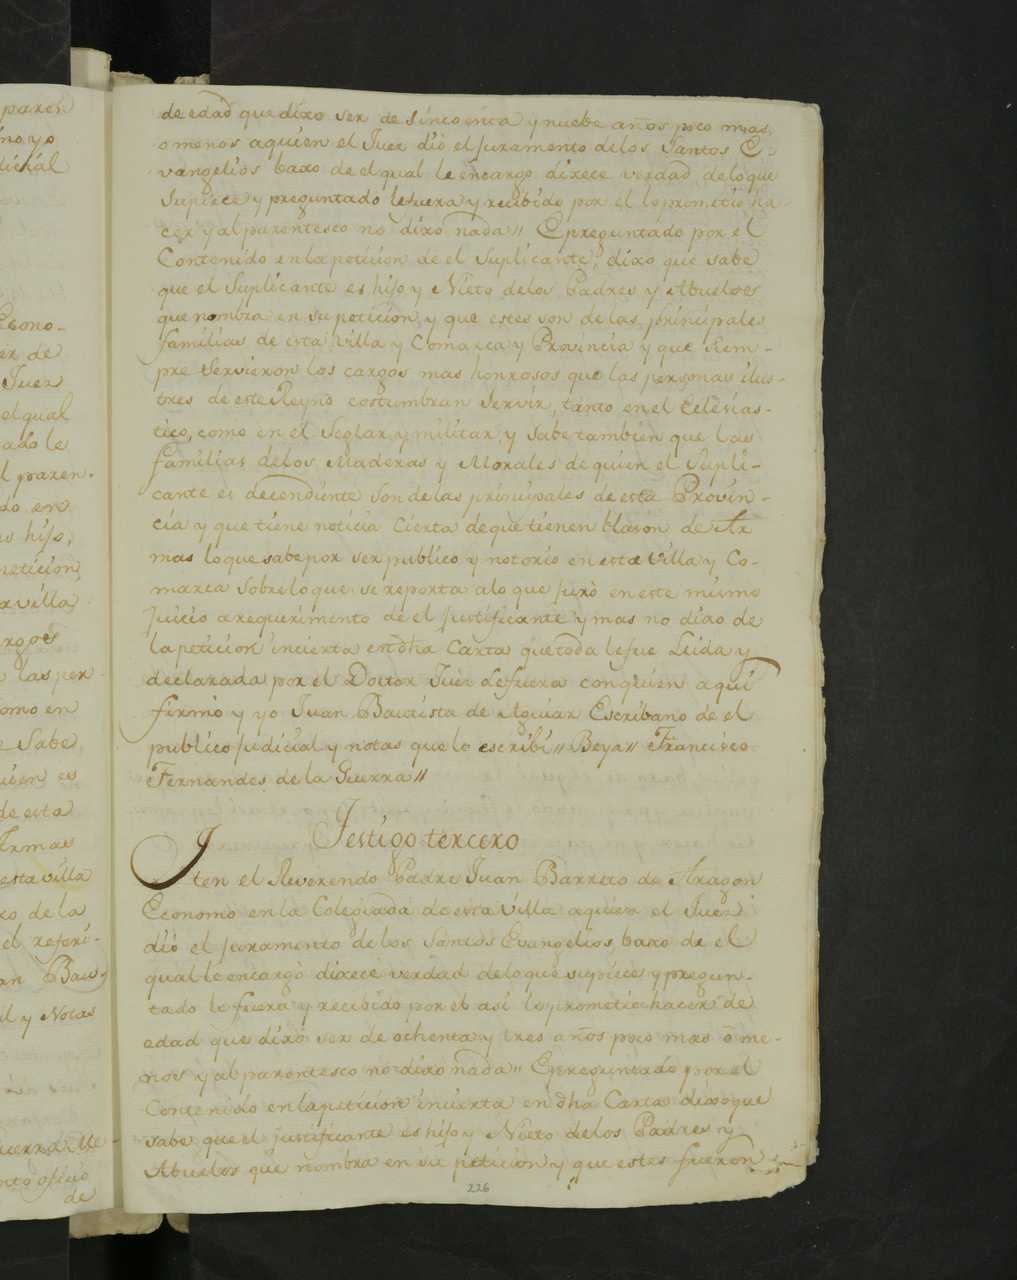 de edad que dixo ser de sincoenta y nuebe años poco mas,
o menos aquien el Juez dió el Juramento delos Santos E-
vangelios baxo de el qual le encargo dixece verdad deloque
Supiece y preguntado lefuera y recibido por el loprometio ha-
cer y al parentesco no dixo nada// Epreguntado por el
Contenido en la peticion de el Suplicante, dixo que sabe
que el Suplicante es hijo y Nieto delos Padres y Abueloes
que nombra en su peticion, y que estes son de las principales
familias de esta Villa y Comarca y Provincia y que Siem-
pre Servieron los cargos mas honrosos que las personas ilus-
tres de este Reyno costumbran Servir, tanto en el Eclesias-
tico, como en el Seglar, y militar, y Sabe tambien que las
familias delos Maderas y Morales de quien el Supli-
cante es decendiente Son de las principales de esta Provin-
cia y que tiene noticia Cierta de que tienen blason de Ar
mas lo que sabe por ser publico y notorio en esta Villa y Co-
marca sobre lo que se reporta alo que juró en este mismo
juicio arequerimento de el justificante y mas no dixo de
la peticion incierta en dha Carta que toda lefue Leida y
declarada por el Doctor Juez defuera conquien aqui
firmó y yo Juan Bautista de Aguiar Escribano de el
publico Judicial y notas que lo escribi// Beya// Francisco
Fernandes de la Guerra//
Testigo tercero
Iten el Reverendo Padre Juan Barreto de Aragon
Economo en la Colegiada de esta Villa aquien el Juez
dió el juramento de los Santos Evangelios, baxo de el
qual le encargò dixece verdad delo que supiece y pregun-
tado lo fuera y recibido por el asi lo prometio hacer de
edad que dixo ser de ochenta y tres años poco mas ó me-
nos y al parentesco no dixo nada// Epreguntado por el
Contenido en la peticion incierta en dha Carta dixo que
sabe que el justificante es hijo y Nieto delos Padres y
Abuelos que nombra en su peticion y que estes fueron
226
paren
ino y o
dicial
Econo-
er de
Juez
el qual
tado le
l paren-
do en
es hijo,
peticion
a villa
argoes
las per-
omo en
e Sabe
uien es
de esta
Armas
esta villa
xo de la
el referi-
an Bau-
al y Notas